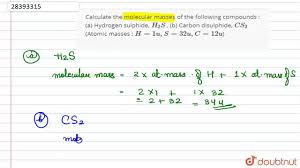 28393315
Calculate the molecular masses of the following compounds :
(a) Hydrogen sulphide, H₂S . (b) Carbon disulphide, CS₂
(Atomic masses : H = 1u, S = 32u, C = 12u)
(a) H₂S
molecular mass = 2 x at. mass of H + 1 x at. mass of S
= 2 x 1 + 1 x 32
= 2 + 32 = 34u
(b) CS₂
mol
doubtnut